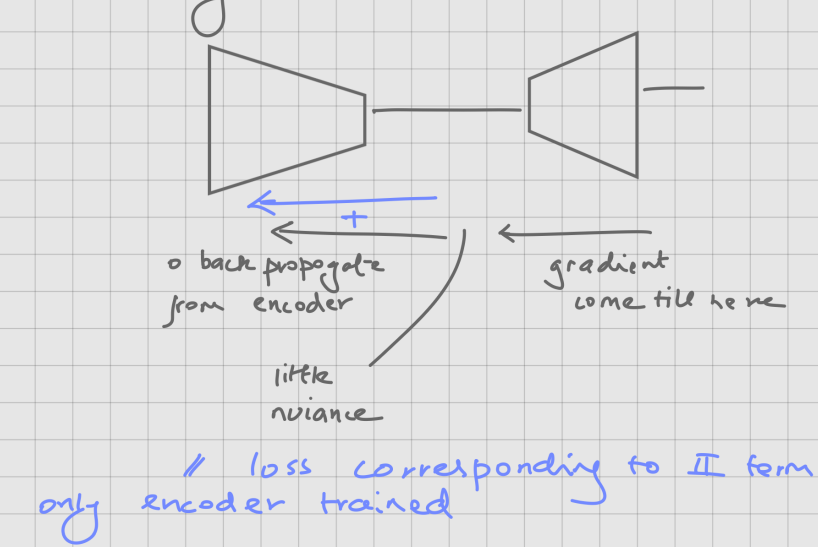 +
o back propogate
from encoder
gradient
come till here
little
nuiance
// loss corresponding to II term
only encoder trained